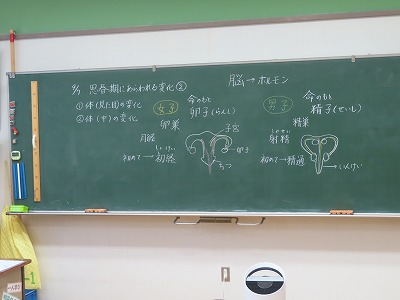 9/1 思春期にあらわれる変化②
脳→ホルモン
①体(見た目)の変化
②体(中)の変化
女子
命のもと
卵子(らんし)
卵巣
月経
しょけい
初めて→初経
子宮
卵子
ちつ
男子
命のもと
精子(せいし)
精巣
しゃせい
射精
初めて→精通
いんけい